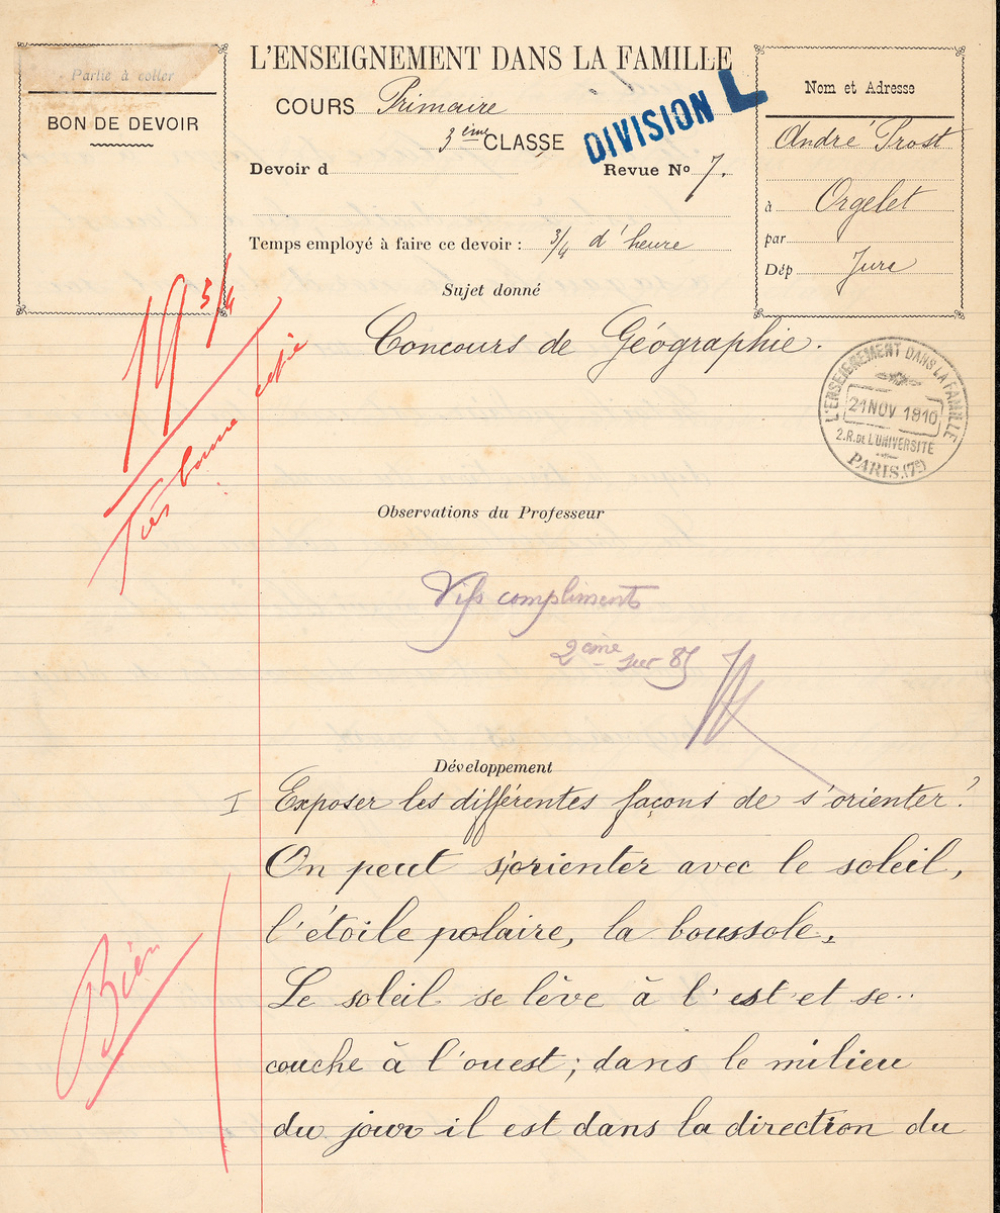 Partie à coller
BON DE DEVOIR
L'ENSEIGNEMENT DANS LA FAMILLE
COURS Primaire
3ème CLASSE
DIVISION L
Devoir d
Revue No 7.
Temps employé à faire ce devoir : 3/4 d'heure
Nom et Adresse
André Prost
à Orgelet
par
Dép Jura
Sujet donné
Concours de Géographie.
19 3/4
Très bonne copie
L'ENSEIGNEMENT DANS LA FAMILLE
21 NOV 1910
2.R. DE L'UNIVERSITÉ
PARIS.(7e)
Observations du Professeur
Vifs compliments
2ème sur 85
Développement
I Exposer les différentes façons de s'orienter?
On peut s'orienter avec le soleil,
l'étoile polaire, la boussole.
Bien
Le soleil se lève à l'est et se
couche à l'ouest; dans le milieu
du jour il est dans la direction du